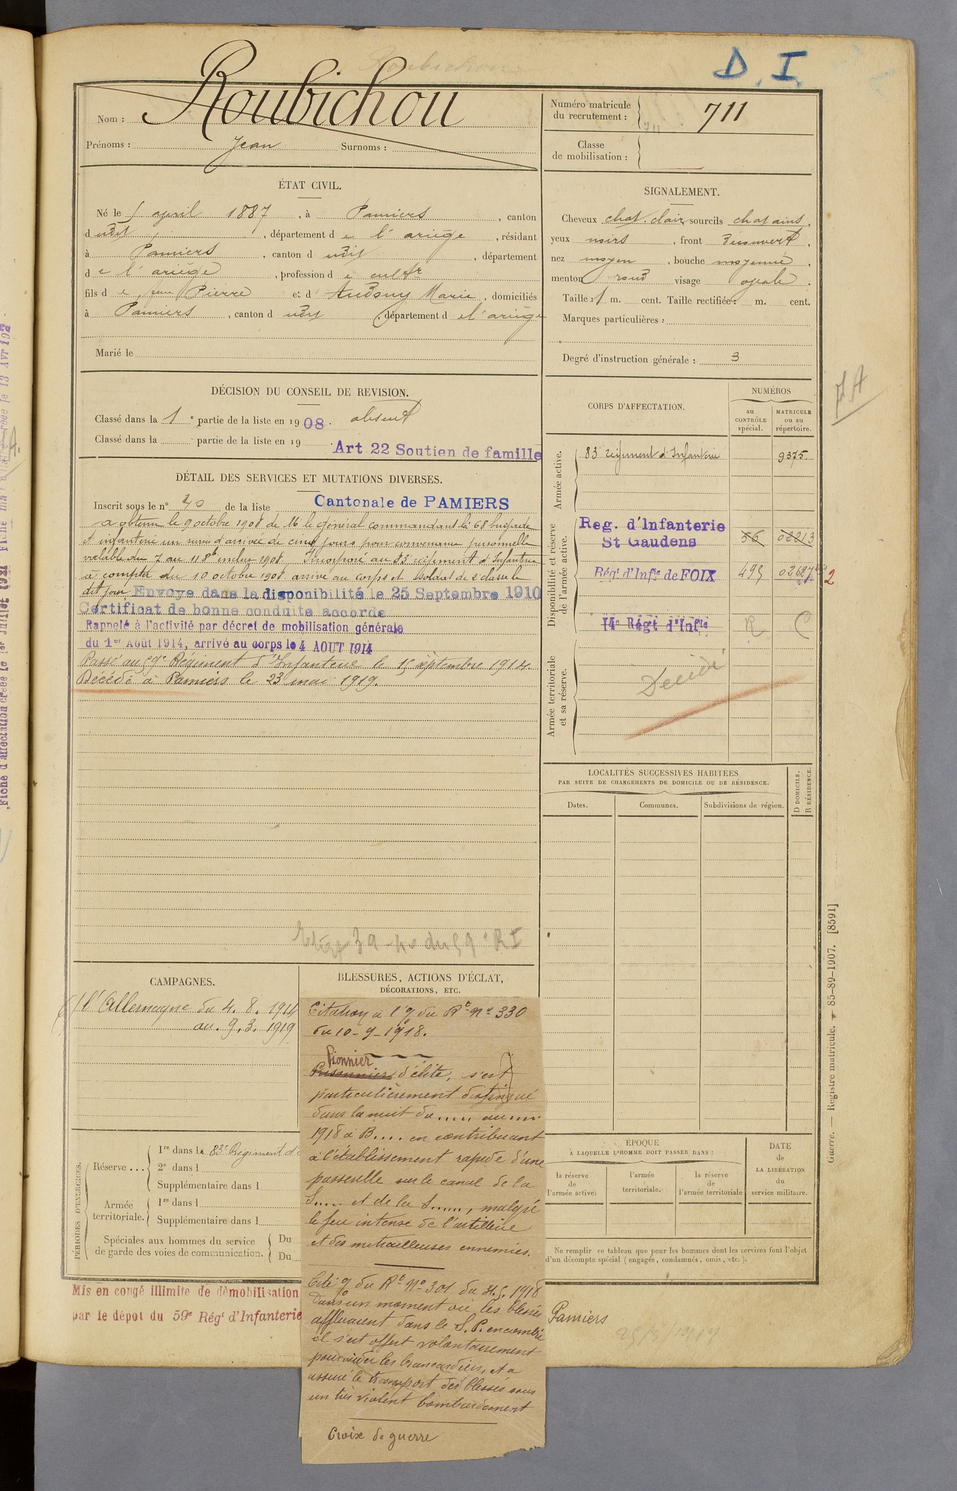 D. I.
Nom : Roubichou
Prénoms : Jean Surnoms :
Numéro matricule du recrutement : 711
Classe de mobilisation :
ÉTAT CIVIL.
Né le avril 1887, à Pamiers, canton
dudit, département de l'ariège, résidant
à Pamiers, canton dudit, département
de l'ariège, profession de cultr
fils de feu Pierre et d'Audouy Marie, domiciliés
à Pamiers, canton dudit, département de l'ariège
Marié le
SIGNALEMENT.
Cheveux chat. clair sourcils chatains,
yeux noirs, front découvert,
nez moyen, bouche moyenne,
menton rond visage ovale.
Taille : 1 m. cent. Taille rectifiée : m. cent.
Marques particulières :
Degré d'instruction générale : 3
DÉCISION DU CONSEIL DE REVISION.
Classé dans la 1e partie de la liste en 1908. absent
Classé dans la partie de la liste en 19
Art 22 Soutien de famille
DÉTAIL DES SERVICES ET MUTATIONS DIVERSES.
Inscrit sous le n° 40 de la liste Cantonale de PAMIERS
a obtenu le 9 octobre 1908 de M le général commandant la 68 brigade
d'infanterie un sursis d'arrivée de cinq jours pour convenance personnelle
valable du 7 au 11 8bre inclus 1908. Incorporé au 83e régiment d'Infanterie
à compter du 10 octobre 1908 arrivé au corps et soldat de 2e classe le
dit jour. Envoyé dans la disponibilité le 25 Septembre 1910
Certificat de bonne conduite accordé
Rappelé à l'activité par décret de mobilisation générale
du 1er Août 1914, arrivé au corps le 4 AOUT 1914
Passé au 59e Régiment d'Infanterie le 15 septembre 1914.
Décédé à Pamiers le 23 mai 1919.
CORPS D'AFFECTATION.
NUMÉROS
au CONTRÔLE spécial.
MATRICULE ou au répertoire.
Armée active.
83e régiment d'Infanterie 9375.
Disponibilité et réserve de l'armée active.
Reg. d'Infanterie
St Gaudens
Régt d'Infie de FOIX 495
14e Régt d'Infie
Armée territoriale et sa réserve.
Décédé
LOCALITÉS SUCCESSIVES HABITÉES
PAR SUITE DE CHANGEMENTS DE DOMICILE OU DE RÉSIDENCE.
Dates. Communes. Subdivisions de région. D DOMICILE. R RÉSIDENCE.
59e RI
CAMPAGNES.
l'Allemagne du 4. 8. 1914
au. 9. 3. 1919
BLESSURES, ACTIONS D'ÉCLAT,
DÉCORATIONS, ETC.
Citation à l'o/ du Rt N° 330
du 10-9-1918.
Pionnier
Prisonnier d'élite, s'est
particulièrement distingué
dans la nuit du ..... au .....
1918 à B.... en contribuant
à l'établissement rapide d'une
passerelle sur le canal de la
S..... et de la S......, malgré
le feu intense de l'artillerie
et des mitrailleuses ennemies.
Cité o/ du Rt N° 301 du 1918
Dans un moment où les blessés
affluaient dans le S.P. ensemble
il s'est offert volontairement
pour aider les brancardiers, et a
assuré le transport des blessés sous
un très violent bombardement
Croix de guerre
PÉRIODES D'EXERCICES.
Réserve ... 1re dans le 83e Régiment d'
2e dans l
Supplémentaire dans l
Armée territoriale. 1re dans l
Supplémentaire dans l
Spéciales aux hommes du service de garde des voies de communication. Du
Du
ÉPOQUE
À LAQUELLE L'HOMME DOIT PASSER DANS :
la réserve de l'armée active.
l'armée territoriale.
la réserve de l'armée territoriale
DATE DE LA LIBÉRATION du service militaire.
Ne remplir ce tableau que pour les hommes dont les services font l'objet
d'un décompte spécial (engagés, condamnés, omis, etc.).
Mis en congé illimité de démobilisation
par le dépot du 59e Régt d'Infanterie
Pamiers
Guerre. — Registre matricule. 85-89-1907. [8591]